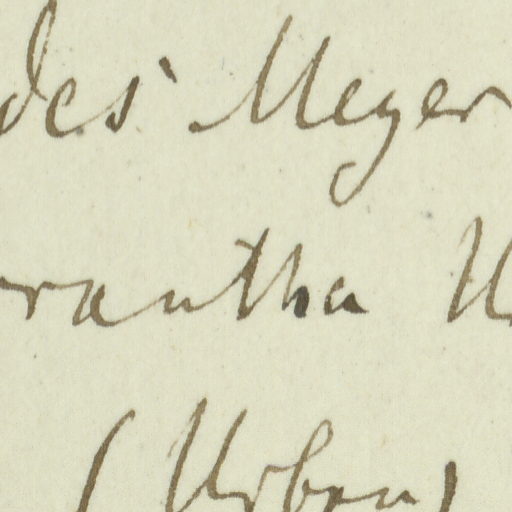 des Meyer
rantha U
(Urban)